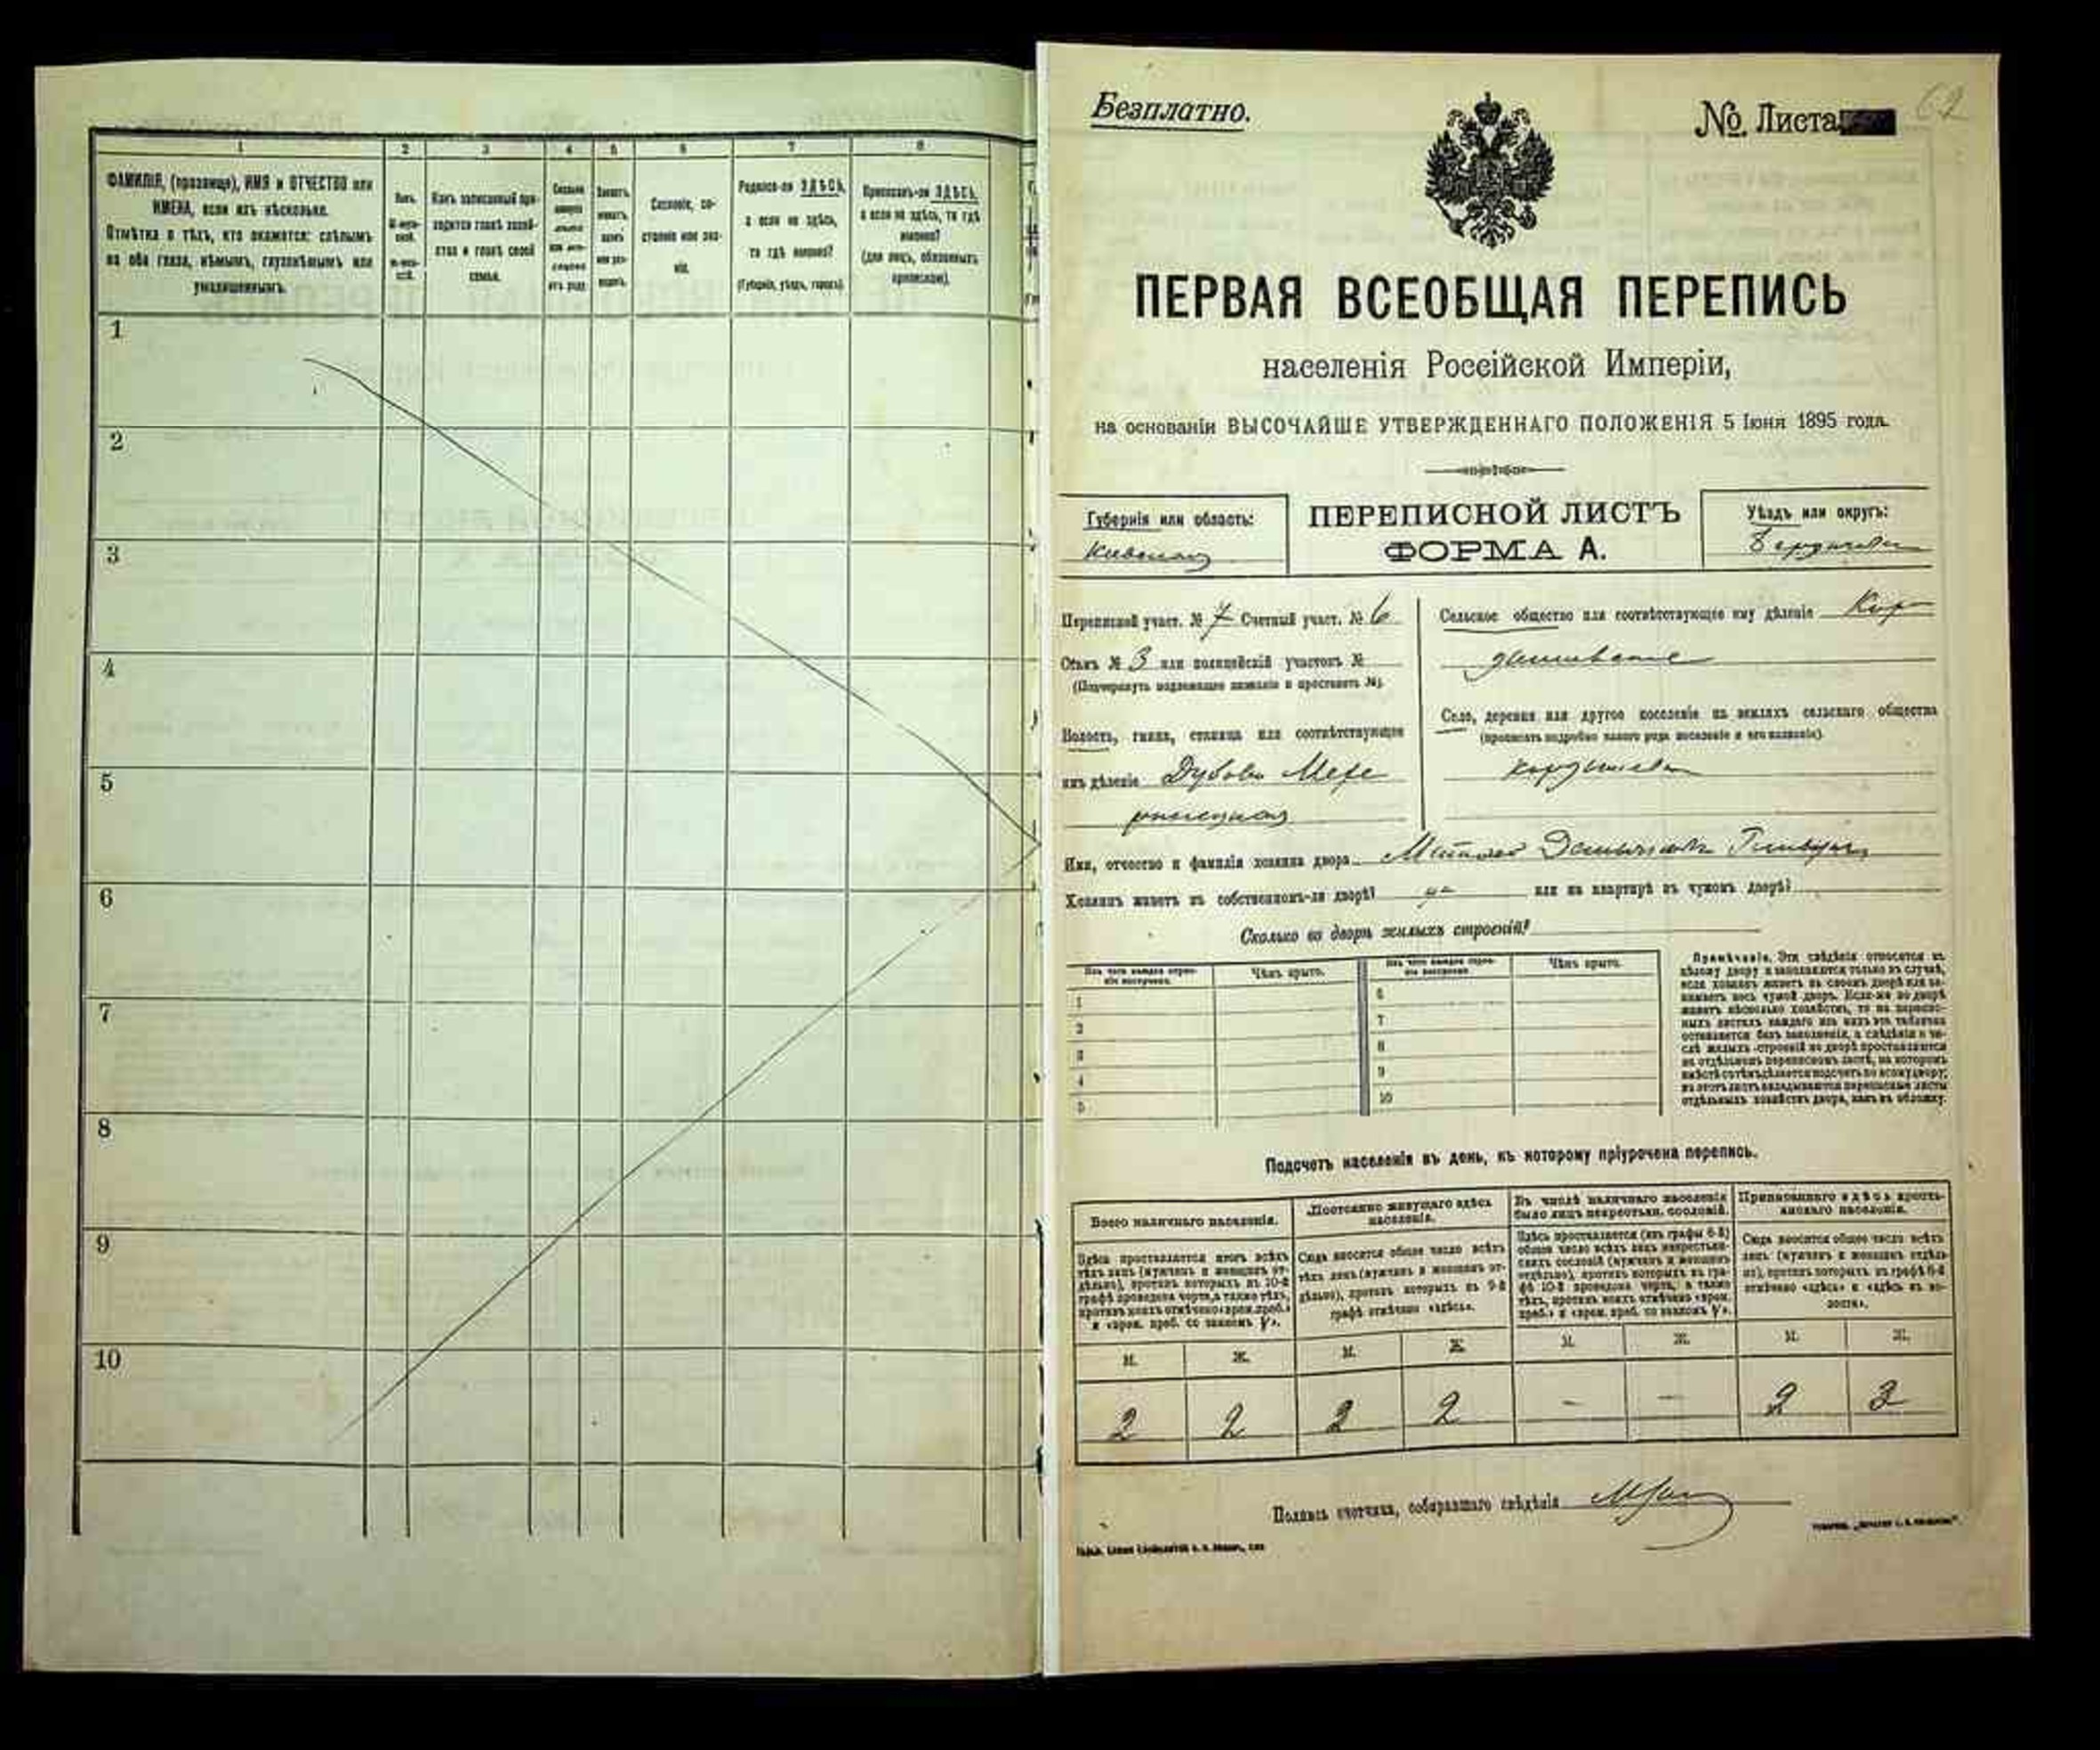 1 2 3 4 5 6 7 8
ФАМИЛІЯ, (прозвище), ИМЯ и ОТЧЕСТВО или
ИМЕНА, если ихъ нѣсколько.
Отмѣтка о тѣхъ, кто окажется: слѣпымъ
на оба глаза, нѣмымъ, глухонѣмымъ или
умалишеннымъ.
Какъ записанный при-
ходится главѣ хозяй-
ства и главѣ своей
семьи.
Сословіе, со-
стояніе или зва-
ніе.
Родился-ли ЗДѢСЬ,
а если не здѣсь,
то гдѣ именно?
(Губернія, уѣздъ, городъ).
Приписанъ-ли ЗДѢСЬ,
а если не здѣсь, то гдѣ
именно?
(для лицъ, обязанныхъ
припискою).
1
2
3
4
5
6
7
8
9
10
Безплатно.
№ Листа
62
ПЕРВАЯ ВСЕОБЩАЯ ПЕРЕПИСЬ
населенія Россійской Имперіи,
на основаніи ВЫСОЧАЙШЕ УТВЕРЖДЕННАГО ПОЛОЖЕНІЯ 5 Іюня 1895 года.
Губернія или область:
Кіевская
ПЕРЕПИСНОЙ ЛИСТЪ
ФОРМА А.
Уѣздъ или округъ:
Переписной участ. № 7 Счетный участ. № 6
Станъ № 3 или полицейскій участокъ №
(Подчеркнуть надлежащее названіе и проставить №).
Волость, гмина, станица или соотвѣтствующее
имъ дѣленіе Дубово Мехе
ринецкая
Сельское общество или соотвѣтствующее ему дѣленіе Кор
дышивское
Село, деревня или другое поселеніе на земляхъ сельскаго общества
(прописать подробно какого рода поселеніе и его названіе).
Имя, отчество и фамилія хозяина двора
Хозяинъ живетъ въ собственномъ-ли дворѣ? или на квартирѣ въ чужомъ дворѣ?
Сколько во дворѣ жилыхъ строеній?
Изъ чего каждое строе-
ніе построено.
Чѣмъ крыто.
Изъ чего каждое строе-
ніе построено.
Чѣмъ крыто.
1 6
2 7
3 8
4 9
5 10
Примѣчаніе. Эти свѣдѣнія относятся къ
цѣлому двору и заполняются только въ случаѣ,
если хозяинъ живетъ въ своемъ дворѣ или за-
нимаетъ весь чужой дворъ. Если-же во дворѣ
живетъ нѣсколько хозяйствъ, то на перепис-
ныхъ листахъ каждаго изъ нихъ эта табличка
оставляется безъ заполненія, а свѣдѣнія о чи-
слѣ жилыхъ строеній во дворѣ проставляются
на отдѣльномъ переписномъ листѣ, на которомъ
вмѣстѣ съ тѣмъ дѣлается подсчетъ по всему двору;
въ этотъ листъ вкладываются переписные листы
отдѣльныхъ хозяйствъ двора, какъ въ обложку.
Подсчетъ населенія въ день, къ которому пріурочена перепись.
Всего наличнаго населенія.
Здѣсь проставляется итогъ всѣхъ
тѣхъ лицъ (мужчинъ и женщинъ от-
дѣльно), противъ которыхъ въ 10-й
графѣ проведена черта, а также тѣхъ,
противъ коихъ отмѣчено «врем. преб.»
и «врем. преб. со знакомъ V».
Постоянно живущаго здѣсь
населенія.
Сюда вносится общее число всѣхъ
тѣхъ лицъ (мужчинъ и женщинъ от-
дѣльно), противъ которыхъ въ 9-й
графѣ отмѣчено «здѣсь».
Въ числѣ наличнаго населенія
было лицъ некрестьян. сословій.
Здѣсь проставляется (изъ графы 6-й)
общее число всѣхъ лицъ некрестьян-
скихъ сословій (мужчинъ и женщинъ
отдѣльно), противъ которыхъ въ гра-
фѣ 10-й проведена черта, а также
тѣхъ, противъ коихъ отмѣчено «врем.
преб.» и «врем. преб. со знакомъ V».
Приписаннаго здѣсь кресть-
янскаго населенія.
Сюда вносится общее число всѣхъ
лицъ (мужчинъ и женщинъ отдѣль-
но), противъ которыхъ въ графѣ 8-й
отмѣчено «здѣсь» и «здѣсь въ во-
лости».
М. Ж. М. Ж. М. Ж. М. Ж.
2 2 2 2 - - 2 3
Подпись счетчика, собиравшаго свѣдѣнія